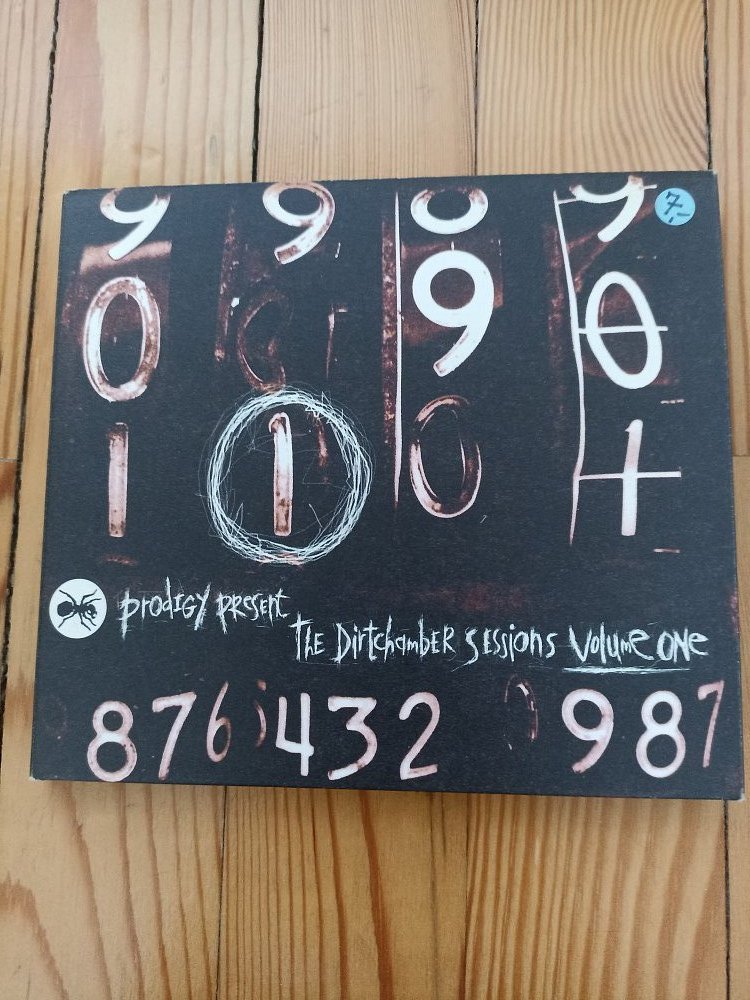 9 9 0 9
7,-
0 9 0
1 1 0 1
prodigy present
the Dirtchamber sessions volume one
8 7 6 4 3 2 9 8 7